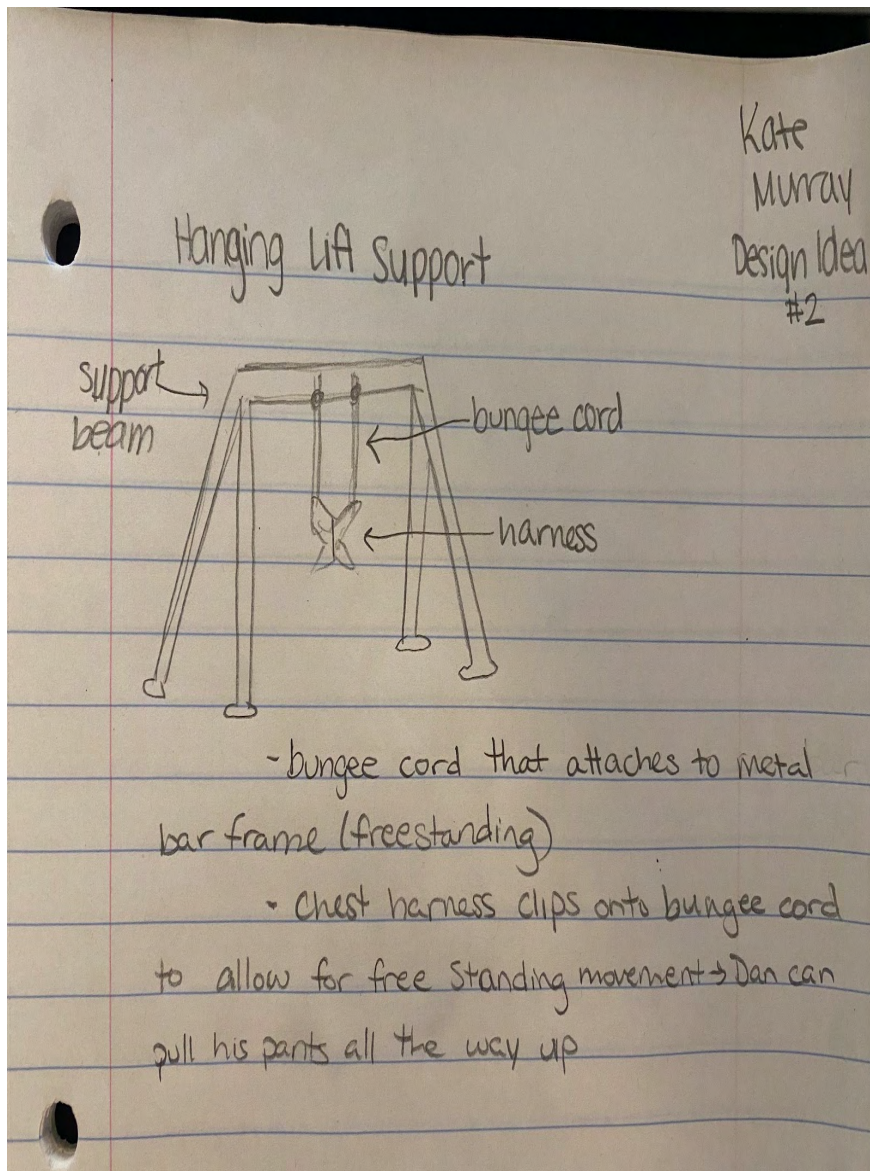 Kate
Murray
Design Idea
#2
Hanging Lift Support
support
beam
bungee cord
harness
- bungee cord that attaches to metal
bar frame (freestanding)
- Chest harness clips onto bungee cord
to allow for free Standing movement → Dan can
pull his pants all the way up